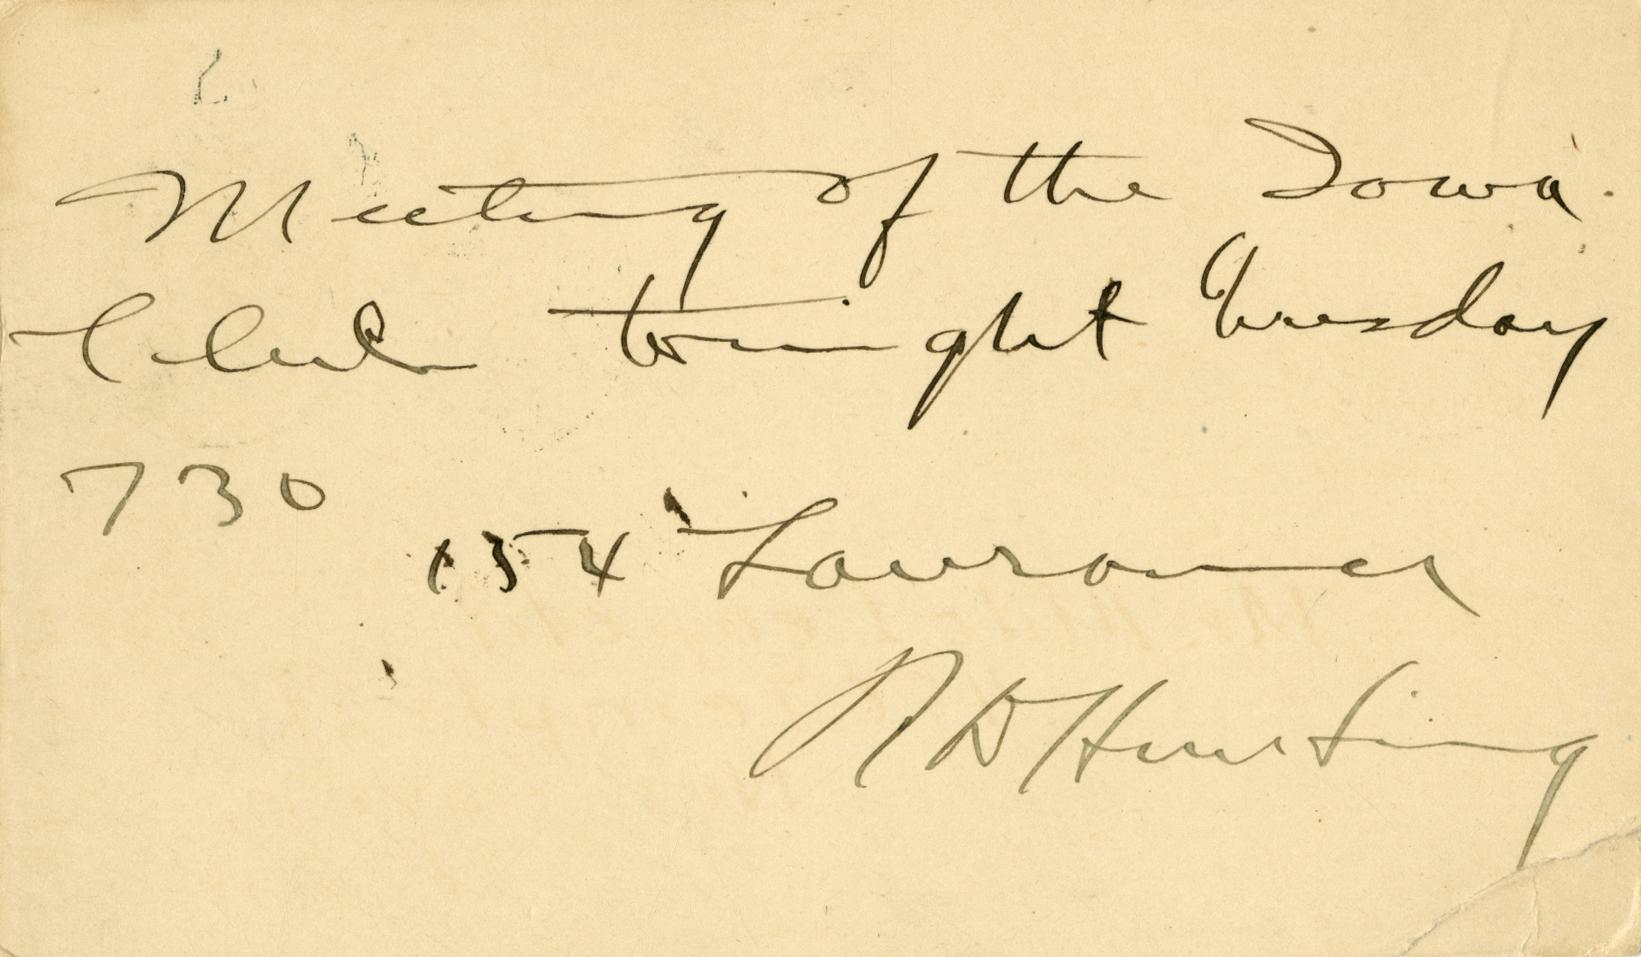 Meeting of the Iowa
Club tonight Tuesday
730
154 Lawrance
N D Hunting